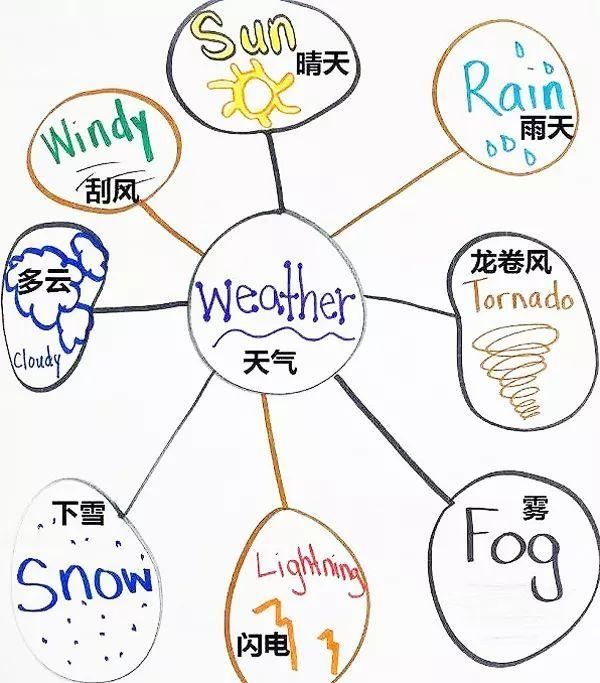 Sun
晴天
Rain
雨天
Windy
刮风
龙卷风
Tornado
多云
Cloudy
Weather
天气
下雪
Snow
Lightning
闪电
雾
Fog